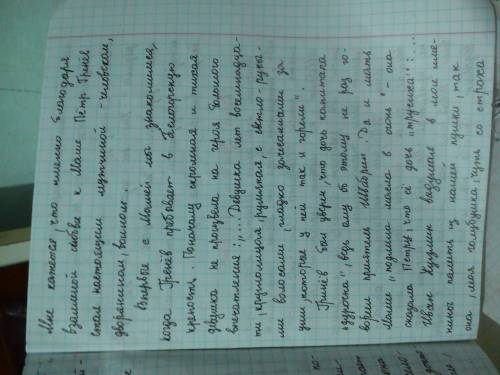 Мне кажется что именно благодаря
взаимной любви к Маше Петр Гринёв
стал настоящим мужчиной - человеком,
дворянином, воином.
Впервые с Машей мы знакомимся,
когда Гринёв пребывает в Белогорскую
крепость. Поначалу скромная и тихая
девушка не произвела на героя большого
впечатления: „... Девушка лет восемнадца-
ти, круглолицая, румяная, с светло-русы-
ми волосами, гладко зачёсанными за
уши, которые у ней так и горели".
Гринёв был уверен, что дочь капитана
„дурочка", ведь ему об этому не раз го-
ворил приятель Швабрин. Да и мать
Маши „подлила масла в огонь" - она
сказала Петру, что её дочь „трусиха": „...
Иван Кузьмич выдумал в мои име-
нины палить из нашей пушки, так
она, моя голубушка, чуть со страха